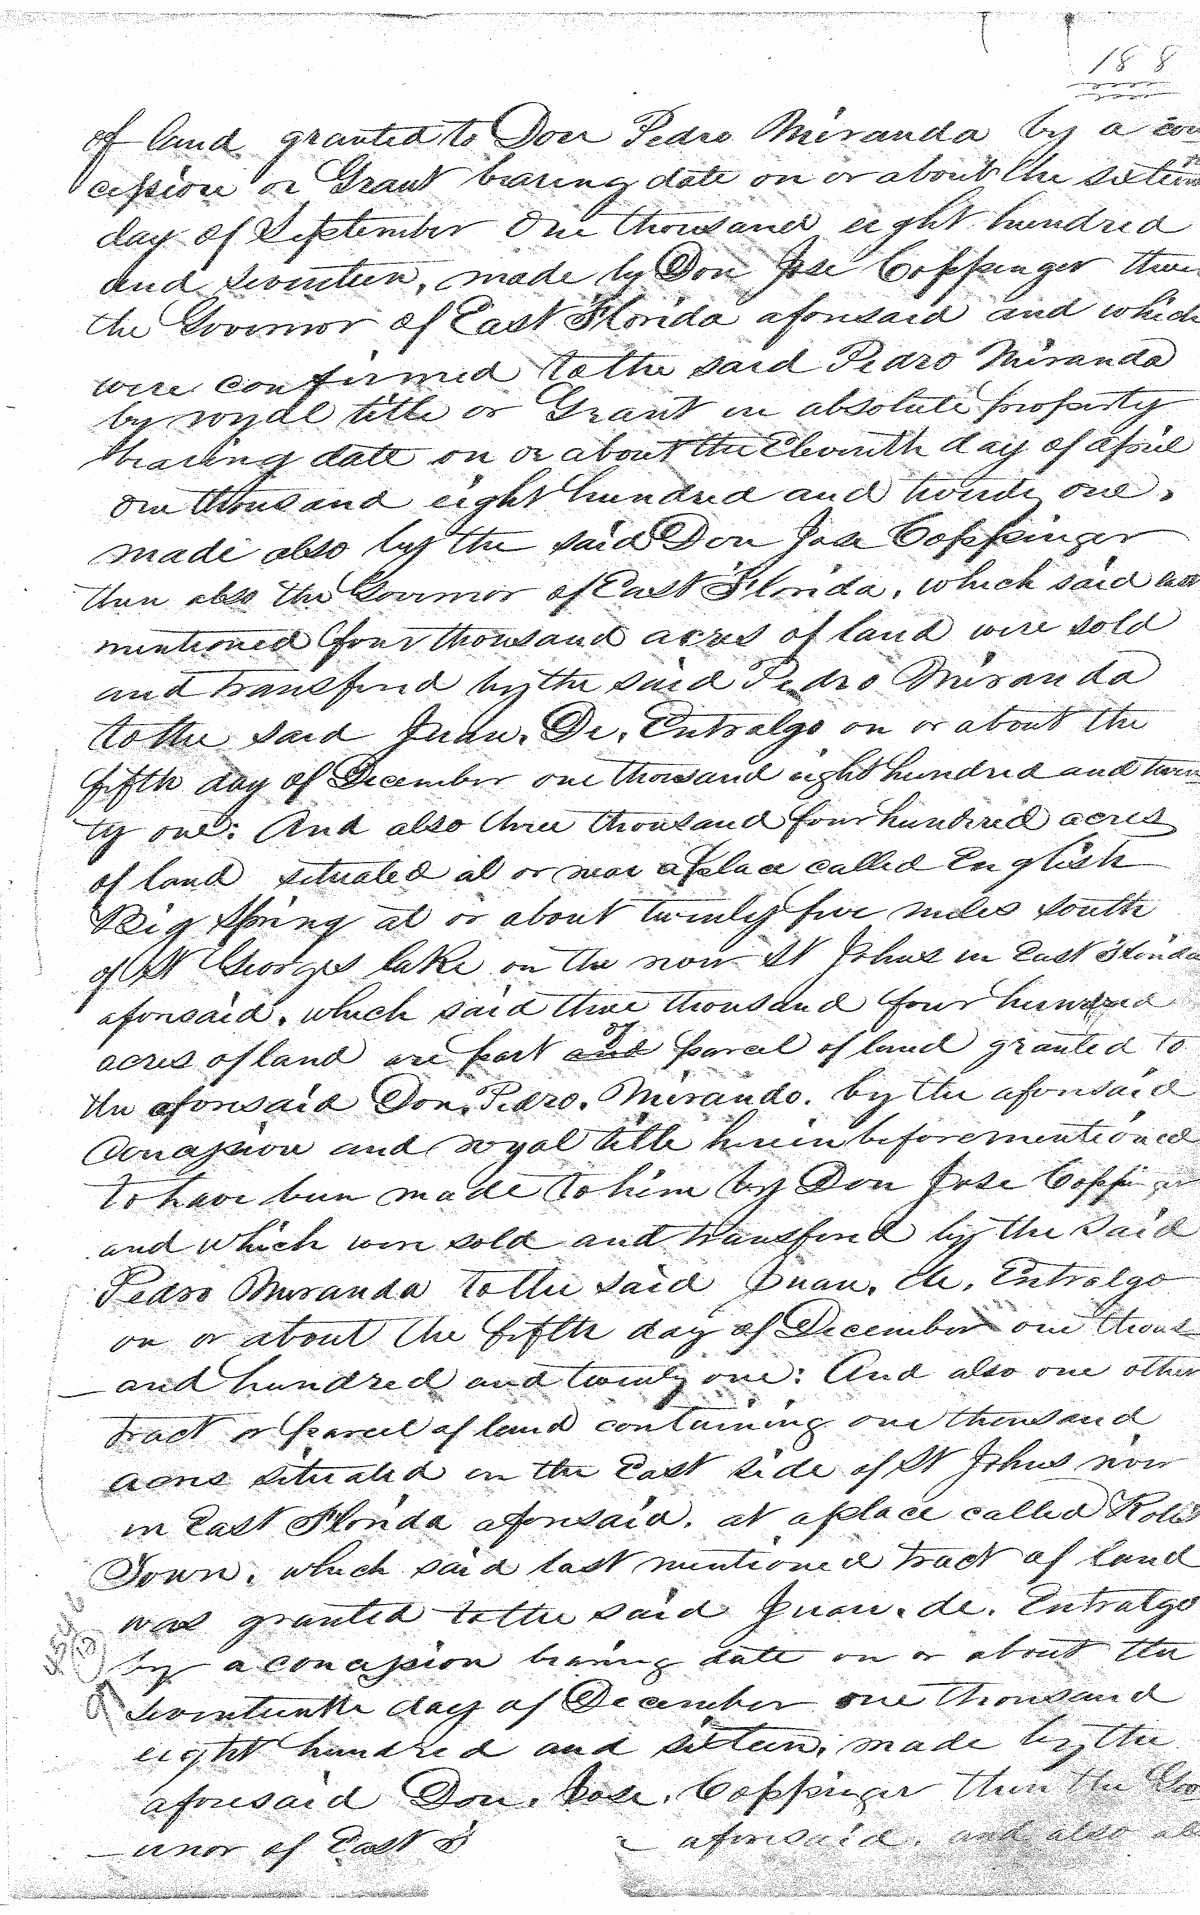 188
of land granted to Don Pedro Miranda by a con
cession or Grant bearing date on or about the sixteen
day of September One thousand eight hundred
and seventeen, made by Don Jose Coppinger then
the Governor of East Florida aforesaid and which
were confirmed to the said Pedro Miranda
by royal title or Grant in absolute property
bearing date on or about the Eleventh day of April
one thousand eight hundred and twenty one,
made also by the said Don Jose Coppinger
then also the Governor of East Florida, which said last
mentioned four thousand acres of land were sold
and transfered by the said Pedro Miranda
to the said Juan, De, Entralgo on or about the
fifth day of December one thousand eight hundred and twen
ty one: And also three thousand four hundred acres
of land situated at or near a place called English
Big Spring at or about twenty five miles south
of St Georges lake on the river St Johns in East Florida
aforesaid. which said three thousand four hundred
acres of land are part and or parcel of land granted to
the aforesaid Don. Pedro. Mirando. by the aforesaid
Concession and royal title herein before mentioned
to have been made to him by Don Jose Coppinger
and which were sold and transfered by the said
Pedro Miranda to the said Juan, de, Entralgo
on or about the fifth day of December one thous
and hundred and twenty one: And also one other
tract or parcel of land containing one thousand
acres situated on the East side of St Johns river
in East Florida aforesaid. at a place called
Town, which said last mentioned tract of land
was granted to the said Juan. de. Entralgo
by a concession bearing date on or about the
seventeenth day of December one thousand
eight hundred and sixteen, made by the
aforesaid Don. Jose. Coppinger then the Gov
ernor of East aforesaid. and also